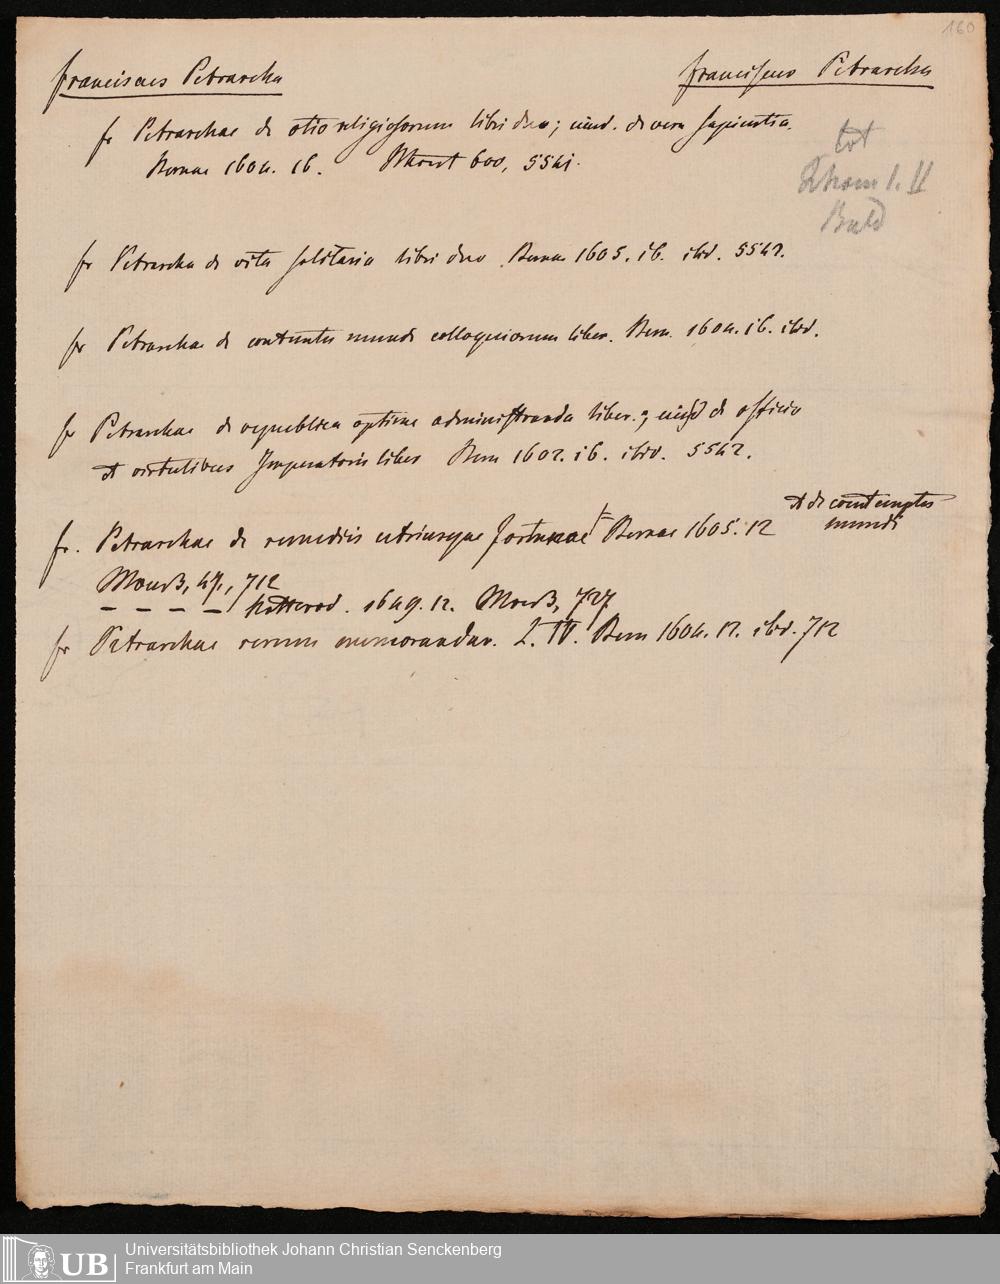 160
Franciscus Petrarcha
Franciscus Petrarcha
fr Petrarchae de otio religiosorum libri duo; eiusd. de vera sapientia.
Bernae 1604. 16. 600, 5541.
tot
I. II
fr Petrarcha de vita solitaria libri duo Bernae 1605. 16. ibd. 5542.
fr Petrarchae de contemtu mundi colloquiorum liber. Bern. 1604. 16. ibd.
fr Petrarchae de republica optime administranda liber.; eiusd de officio
et virtutibus Imperatoris liber Bern 1602. 16. ibd. 5542.
et de contemptu
mundi
fr. Petrarchae de remediis utriusque fortunae Bernae 1605. 12
47, 712
– – – – Rotterod. 1649. 12. 727
fr Petrarchae rerum memorandar. L. IV. Bern 1604. 12. ibd. 712
UB
Universitätsbibliothek Johann Christian Senckenberg
Frankfurt am Main